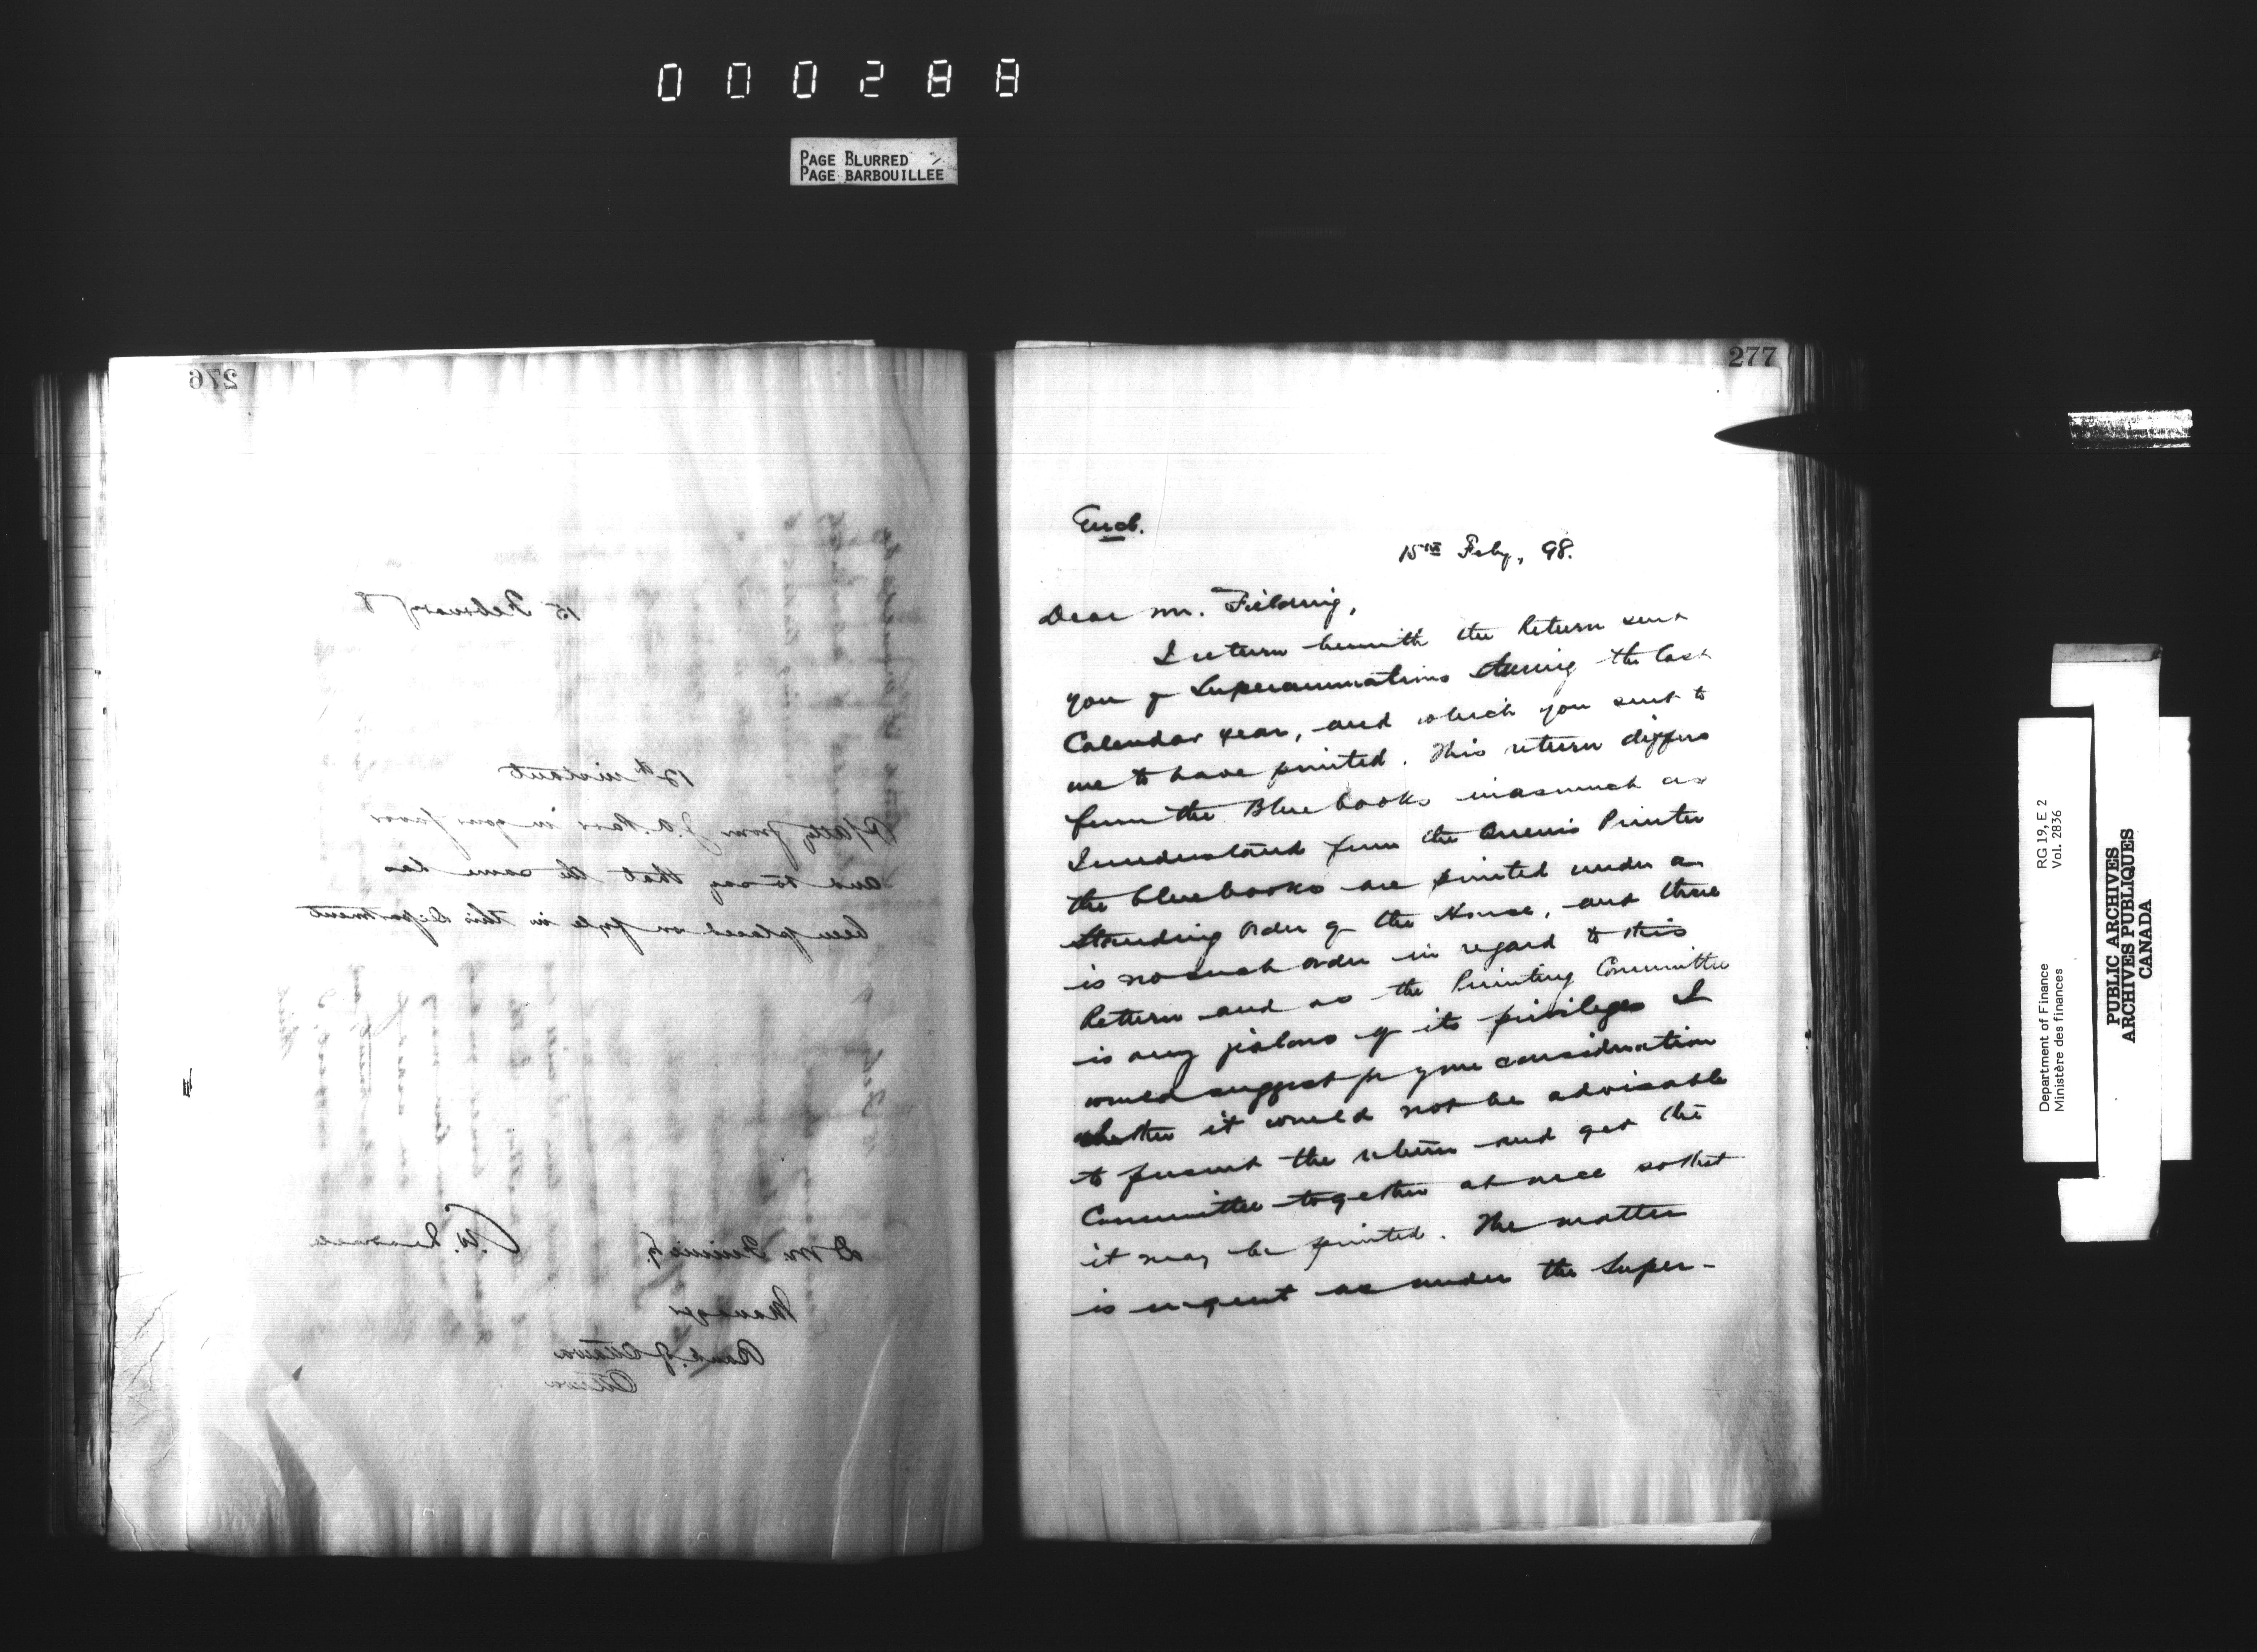 000288
PAGE BLURRED
PAGE BARBOUILLEE
276
15 February 8
12th instant
P/atty from J. A. in your favor
and to say that the same has
been placed on fyle in this Department
D M. Finnie Esq.
Manager
Bank of Ottawa
Ottawa
277
Encl.
15th Feby, 98.
Dear Mr. Fielding,
I return herewith the Return sent
you of Superannuations during the last
Calendar year, and which you sent to
me to have printed. This return differs
from the Blue books inasmuch as
I understand from the Queen's Printer
the bluebooks are printed under a
Standing Order of the House, and there
is no such order in regard to this
Return and as the Printing Committee
is very jealous of its privileges I
would suggest for your consideration
whether it would not be advisable
to present the return and get the
Committee together at once so that
it may be printed. The matter
is urgent as under the Super-
Department of Finance RG 19, E 2
Ministère des finances Vol. 2836
PUBLIC ARCHIVES
ARCHIVES PUBLIQUES
CANADA